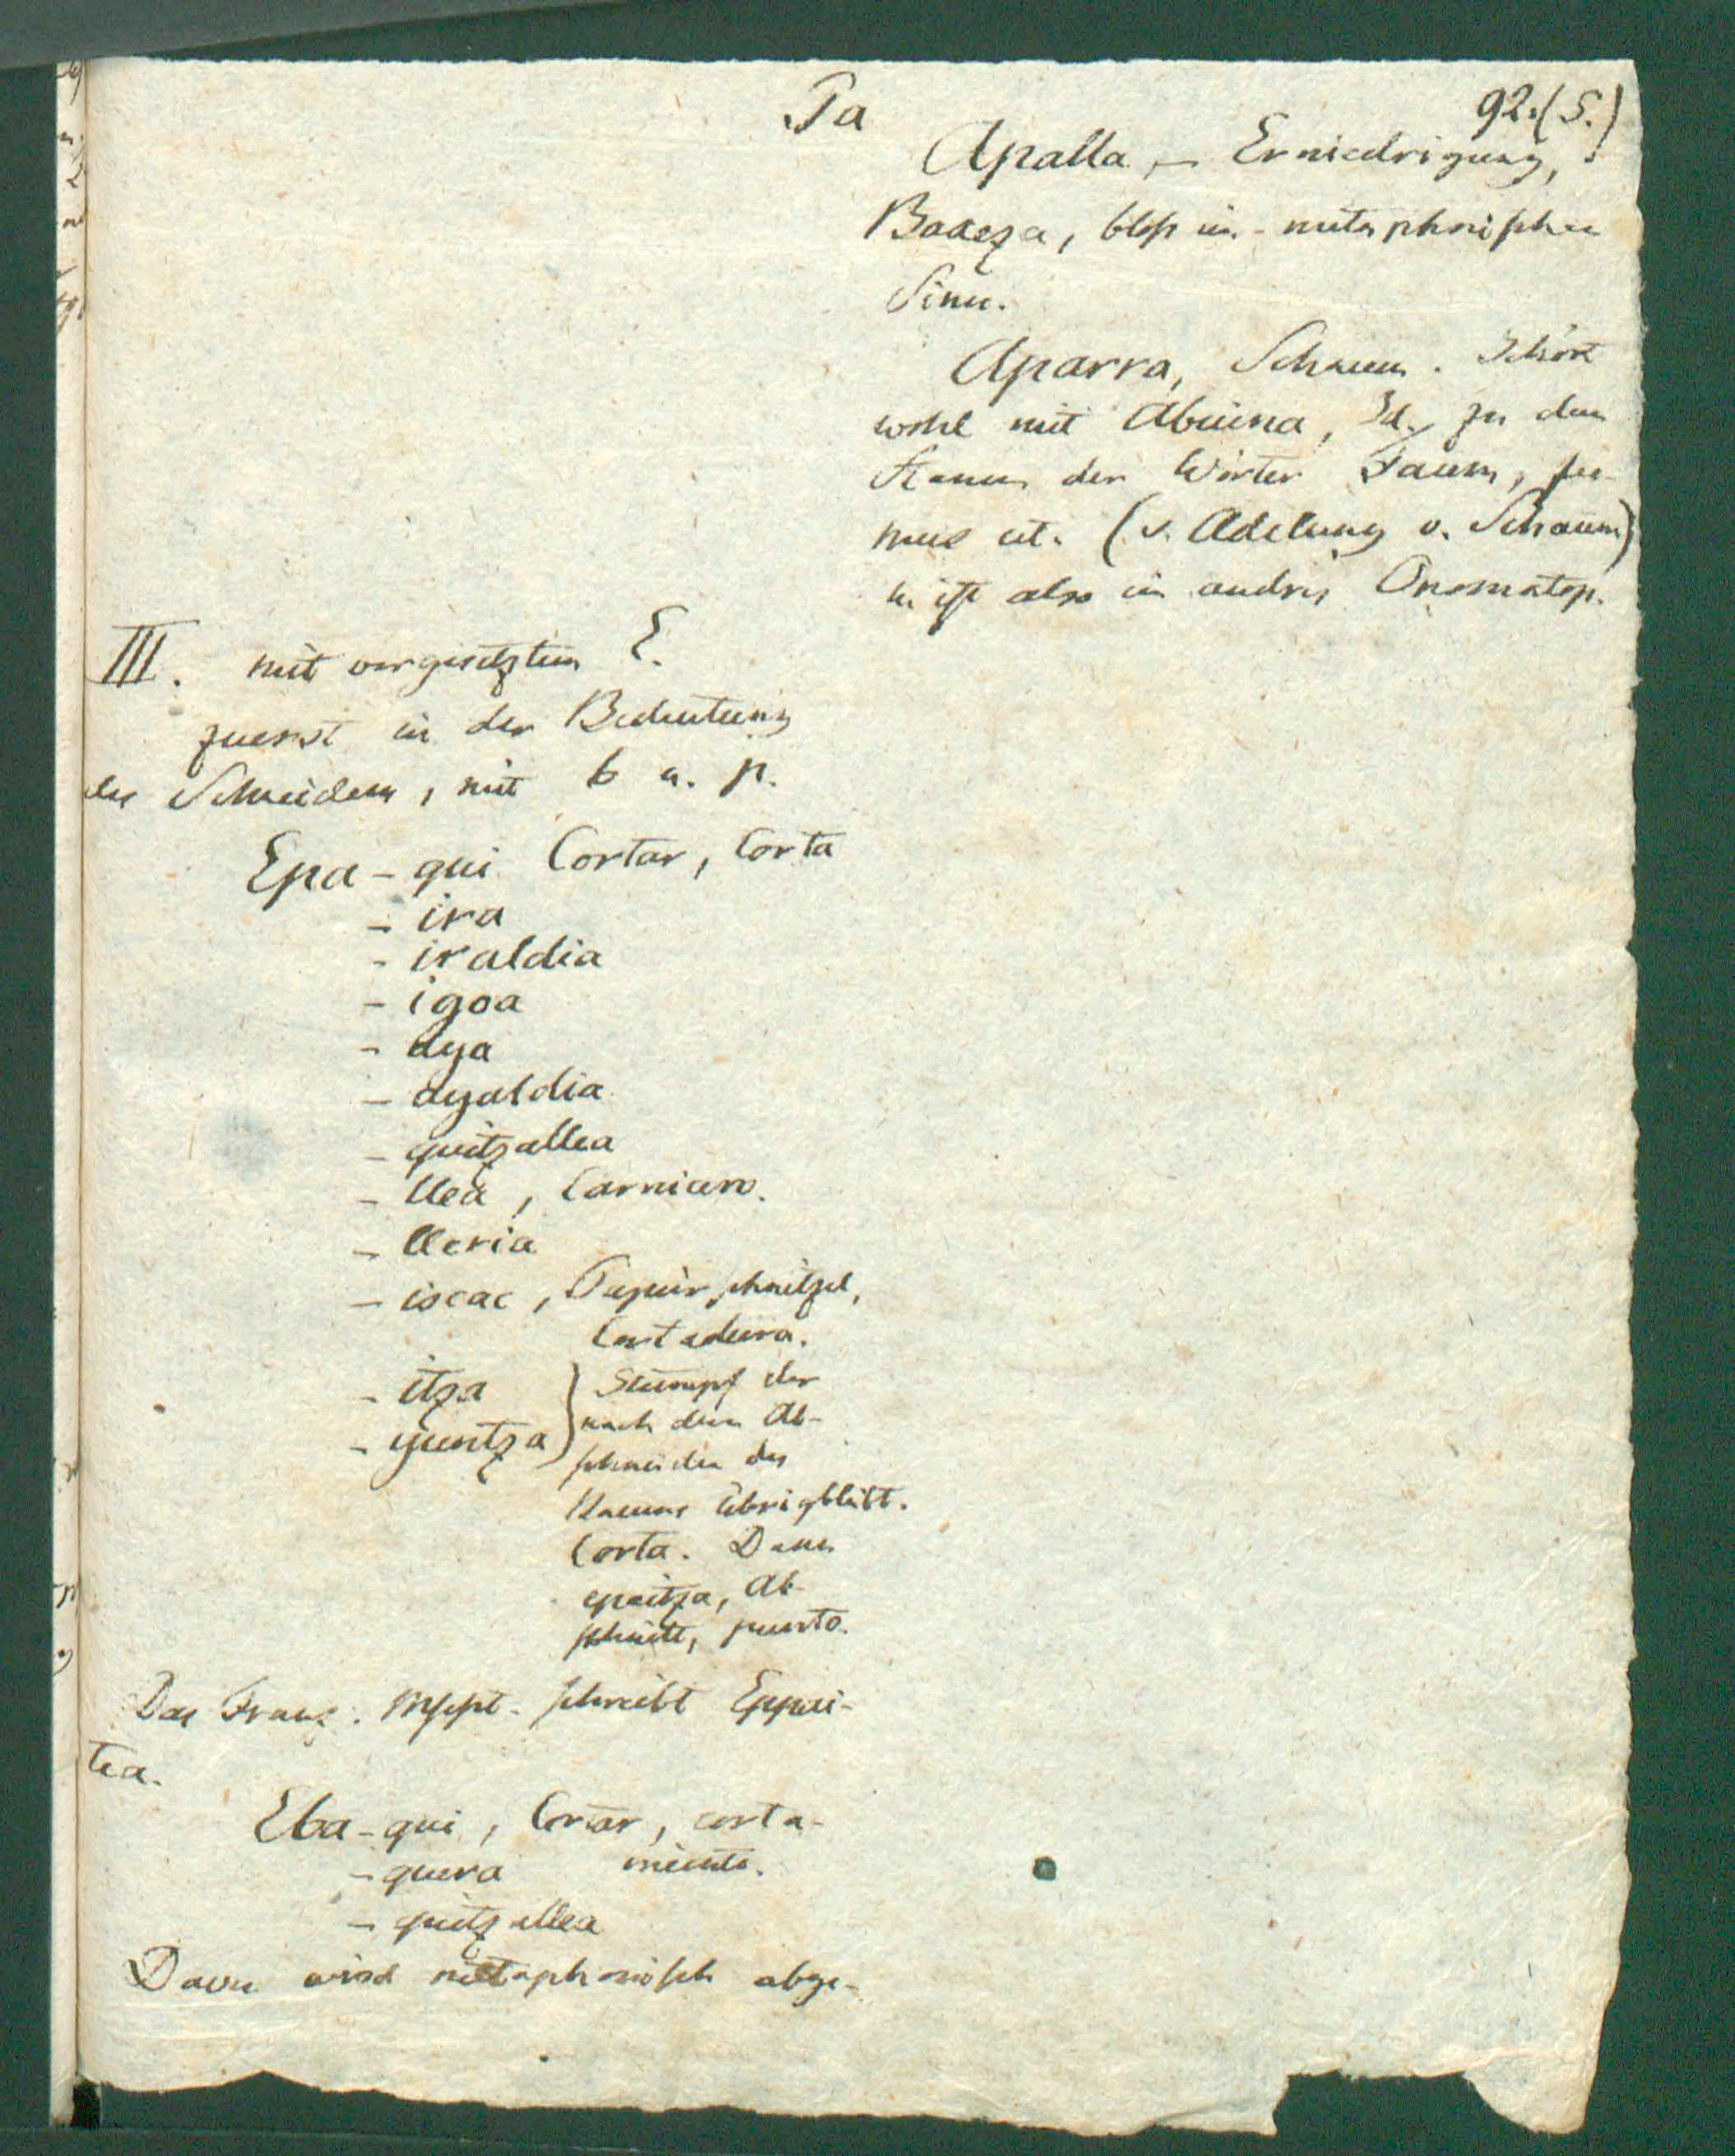 Pa
92.(5.)
Apalla, – Erniedrigung,
Baxeza, bloß in metaphorischen
Sinn.
Aparra, Schaum. Gehört
wohl mit Abuina, Id. zu dem
Stamm der Wörter Faum, fu-
mus etc. (v. Adelung v. Schaum)
u. ist also ein andres Onomatop.
III. mit vorgesetztem E.
zuerst in der Bedeutung
des Schneidens, mit b u. p.
Epa - qui Cortar, Corta
- ira
- iraldia
- igoa
- aya
- ayaldia
- quitzallea
- llea, Carnicero.
- lleria
- iscac, Papierschnitzel,
Cortadura.
- itza } Stumpf der
- yuntza } nach dem Ab-
schneiden des
Baums übrigbleibt.
Corta. Dann
epaitza, Ab-
schnitt, punto.
Das Franz. Mscpt. schreibt Eppai-
tea.
Eba - qui, Cortar, corta-
- quera miento.
- quitzallea
Davon wird metaphorisch abge-